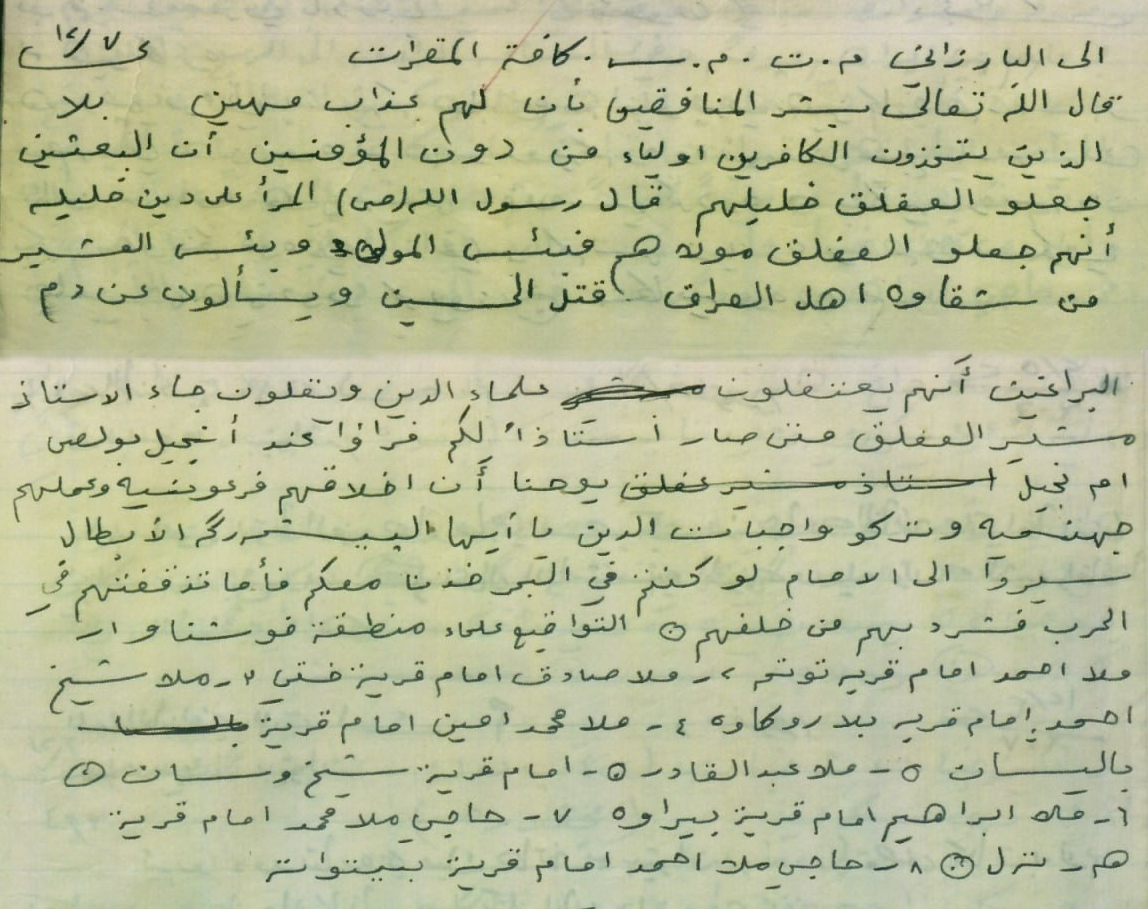 الى البارزاني م.ت . م.س . كافة المقرات ١٢/٧
قال الله تعالى بشر المنافقين بأن لهم عذاب مهين بلا
الذين يتخذون الكافرين اولياء من دون المؤمنين أن البعثين
جعلو العفلق خليلهم قال رسول الله (ص) المرأ على دين خليله
أنهم جعلو العفلق مولاهم فبئس المولى وبئس العشير
من شقاوه اهل العراق قتل الحسين ويسألون عن دم
البراغيث أنهم يعتقلون علماء الدين ويقلون جاء الاستاذ
مشير العفلق متى صار أستاذاً لكم قراؤا عند أنجيل بولص
ام نجيل استاذ مشير عفلق يوهنا أن اخلاقهم فرعونيه وعملهم
جهنميه وتركو واجبات الدين يا أيها البيشمرگه الأبطال
سيروا الى الامام لو كنتم في البحر خذنا معكم فأما تذقفنهم في
الحرب فشرد بهم من خلفهم التواقيع علماء منطقة خوشناو ار
ملا احمد امام قريه توتمه ٢ـ ملا صادق امام قرية ختي ٣ـ ملا شيخ
احمد إمام قريه بلاروكاوه ٤ـ ملا محمد امين امام قرية
باليسان ٥ـ ملا عبدالقادر ٥ـ امام قرية شيخ وسان
٦ـ ملا ابراهيم امام قرية بيراوه ٧ـ حاجي ملا محمد امام قرية
هرتل ٨ـ حاجي ملا احمد امام قرية بيتواته